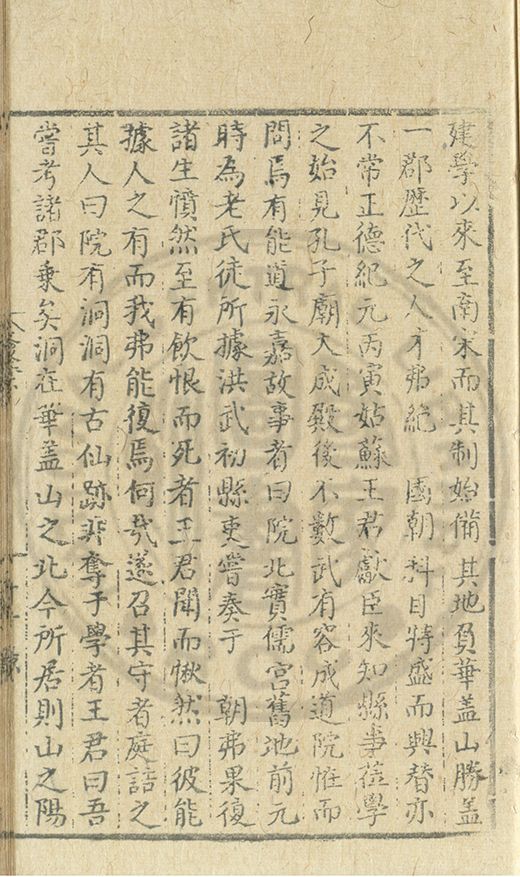 建學以來至南宋而其制始備其地負華蓋山勝蓋
一郡歷代之人才弗絕　國朝科目特盛而興替亦
不常正德紀元丙寅姑蘇王君獻臣來知縣事蒞學
之始見孔子廟大成殿後不數武有容成道院惟而
問焉有能道永嘉故事者曰院北實儒宮舊地前元
時為老氏徒所據洪武初縣吏嘗奏于　朝弗果復
諸生憤然至有飲恨而死者王君聞而愀然曰彼能
據人之有而我弗能復焉何哉遂召其守者庭詰之
其人曰院有洞洞有古仙跡非奪于學者王君曰吾
嘗考諸郡乗矣洞在華蓋山之北今所居則山之陽